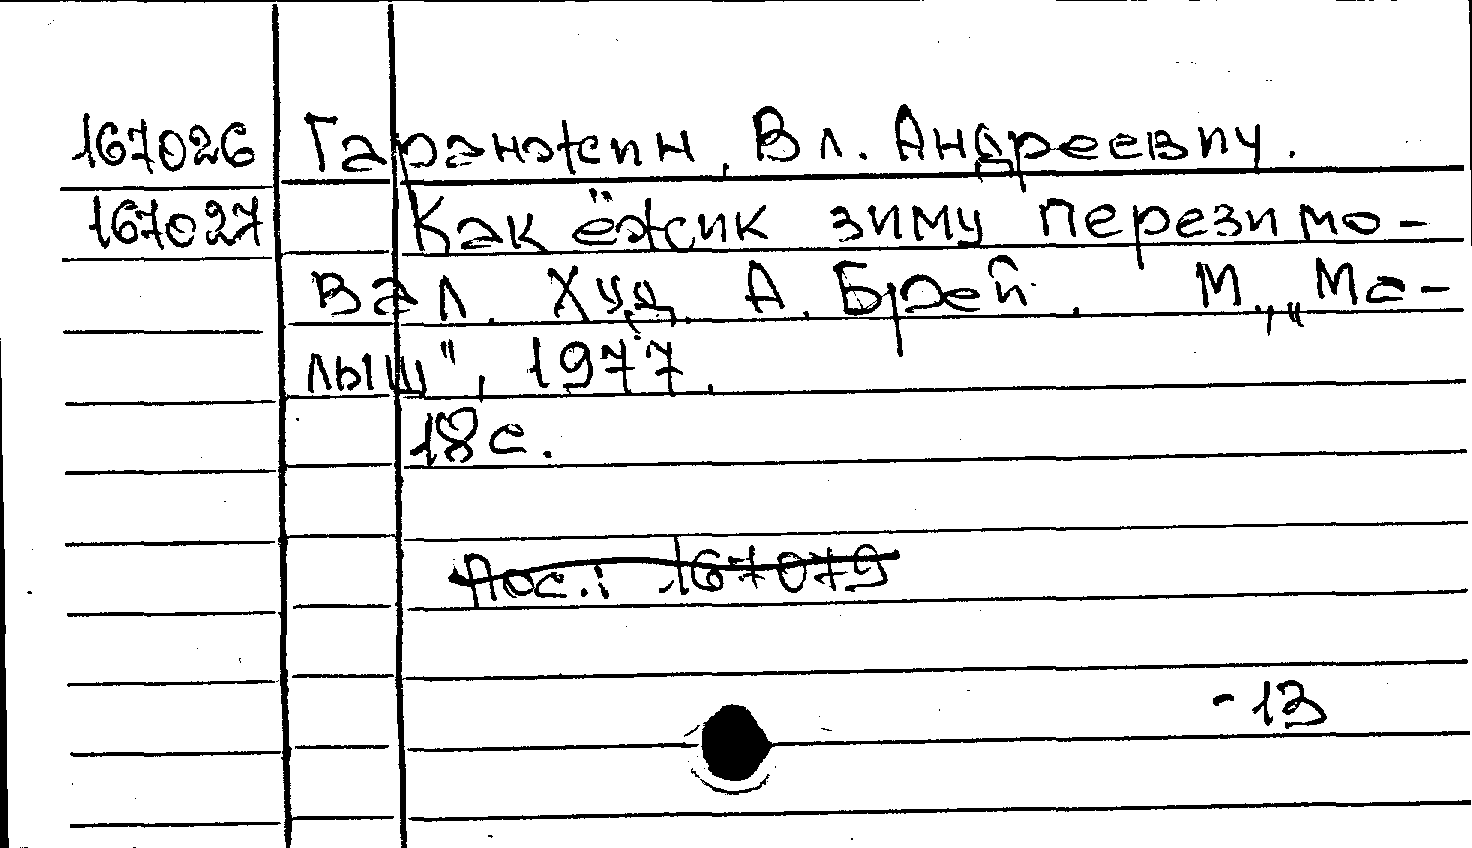 167026 Гаранжин, Вл. Андреевич.
167027 Как ёжик зиму перезимо-
вал. Худ. А. Брей. М., „Ма-
лыш", 1977.
18 с.
Пос.: 167079
- 13